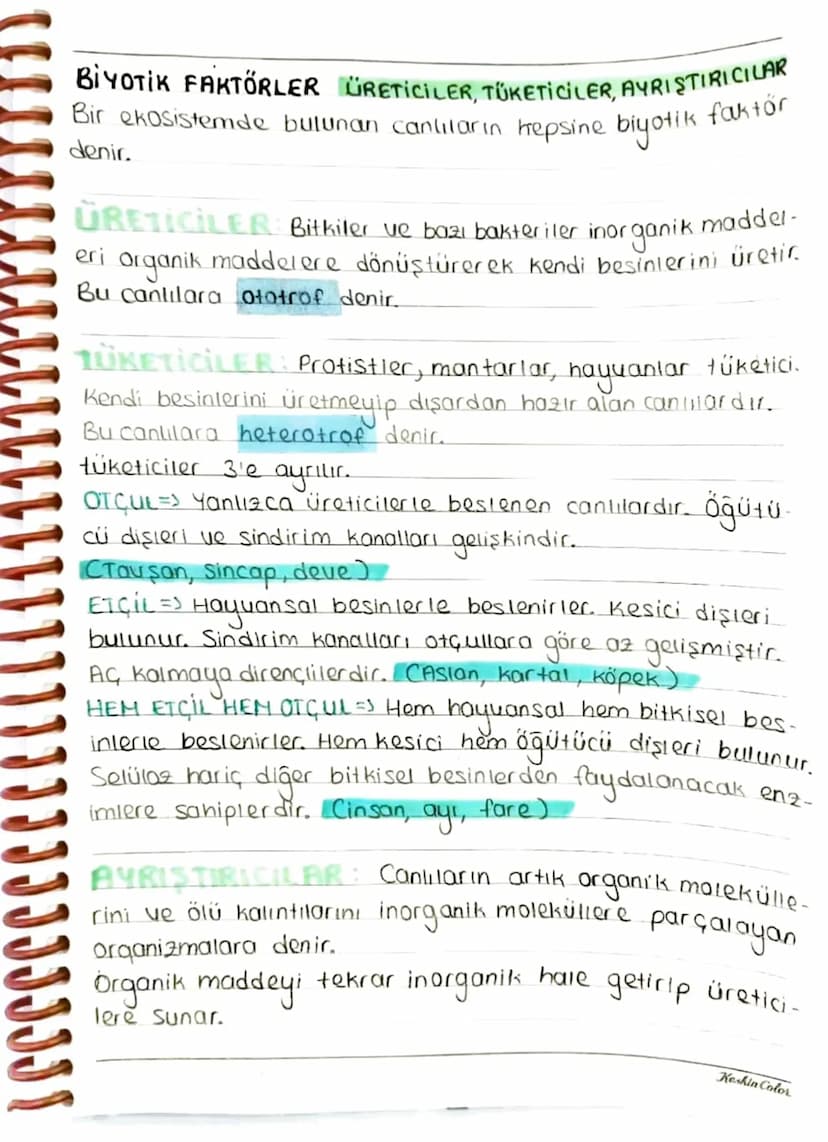 BİYOTİK FAKTÖRLER ÜRETİCİLER, TÜKETİCİLER, AYRIŞTIRICILAR
Bir ekosistemde bulunan canlıların hepsine biyotik faktör
denir.
ÜRETİCİLER: Bitkiler ve bazı bakteriler inorganik maddel-
eri organik maddelere dönüştürerek kendi besinlerini üretir.
Bu canlılara ototrof denir.
TÜKETİCİLER: Protistler, mantarlar, hayvanlar tüketici.
Kendi besinlerini üretmeyip dışardan hazır alan canlılardır.
Bu canlılara heterotrof denir.
tüketiciler 3'e ayrılır.
OTÇUL=> Yanlızca üreticilerle beslenen canlılardır. Öğütü-
cü dişleri ve sindirim kanalları gelişkindir.
(Tavşan, sincap, deve)
ETÇİL=> Hayvansal besinlerle beslenirler. Kesici dişleri
bulunur. Sindirim kanalları otçullara göre az gelişmiştir.
Aç kalmaya dirençlilerdir. (Aslan, kartal, köpek)
HEM ETÇİL HEM OTÇUL=> Hem hayvansal hem bitkisel bes-
inlerle beslenirler. Hem kesici hem öğütücü dişleri bulunur.
Selüloz hariç diğer bitkisel besinlerden faydalanacak enz-
imlere sahiplerdir. (insan, ayı, fare)
AYRIŞTIRICILAR: Canlıların artık organik molekülle-
rini ve ölü kalıntılarını inorganik moleküllere parçalayan
organizmalara denir.
Organik maddeyi tekrar inorganik hale getirip üretici-
lere sunar.
Keskin Color